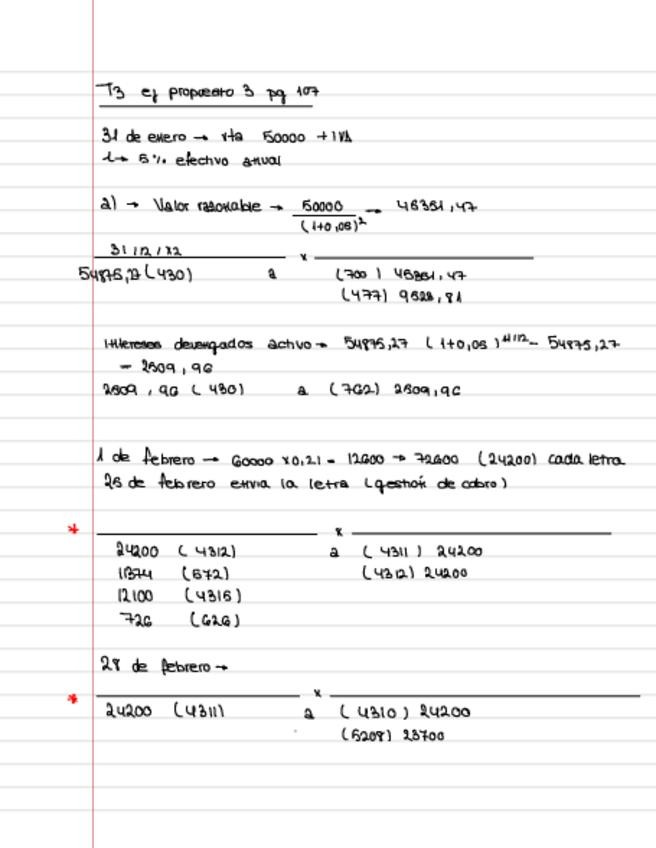 T3 ej propuesto 3 pg 107
31 de enero → vta 50000 + IVA
↳ 5% efectivo anual
a) → Valor razonable → 50000 / (1+0,05)² = 45351,47
31/12/X2 x
54875,27 (430) a (700) 45351,47
(477) 9523,81
Intereses devengados activo → 54875,27 (1+0,05)^11/12 - 54875,27
= 2509,96
2509,96 (430) a (762) 2509,96
1 de febrero → 60000 x0,21 = 12600 → 72600 (24200) cada letra
25 de febrero envia la letra (gestión de cobro)
* x
24200 (4312) a (4311) 24200
11374 (572) (4312) 24200
12100 (4315)
726 (626)
28 de febrero →
* x
24200 (4311) a (4310) 24200
(5208) 23700